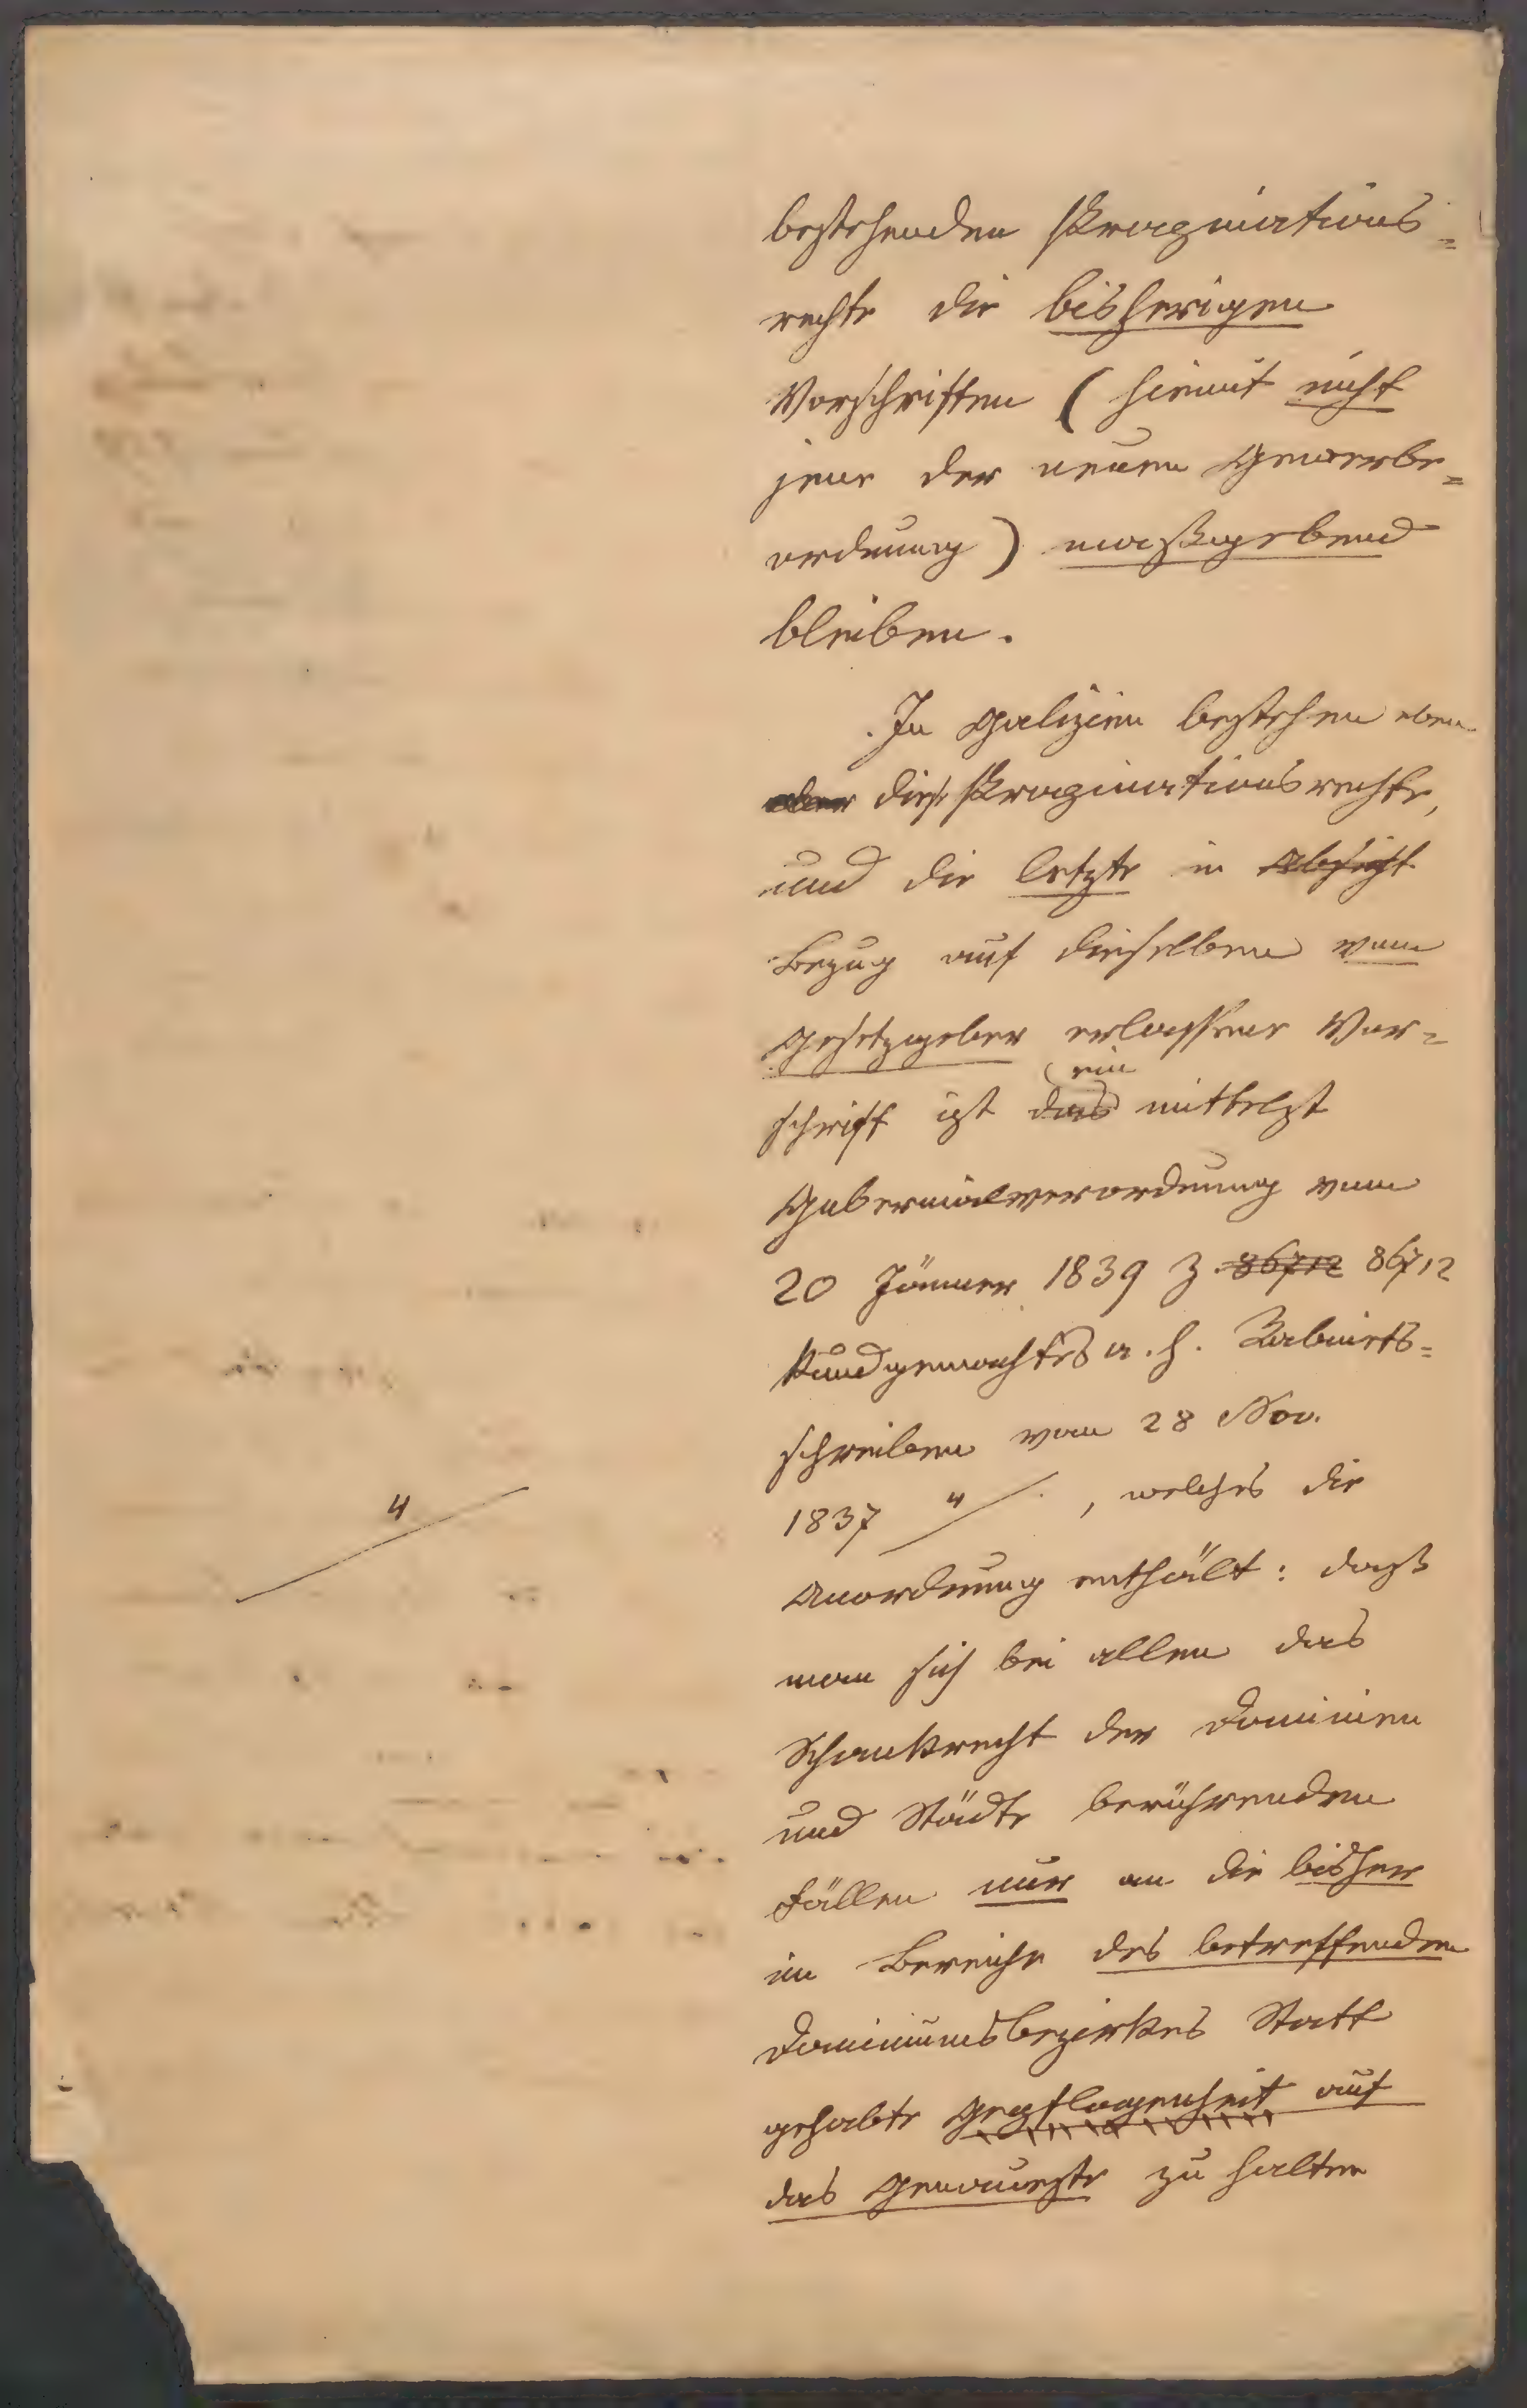 bestehenden Propinations=
rechte die bisherigen
Vorschriften ( hiemit nicht
jene der neuen Gewerbe=
ordnung ) maßgebend
bleiben.
In Galizien bestehen eben
aber diese Propinationsrechte,
und die letzte in Absicht
Bezug auf dieselben vom
Gesetzgeber erlassene Vor=
ein
schrift ist das mittelst
Gubernialverordnung vom
20 Jänner 1839 Z. 86712 86712
kundgemachtes a. h. Kabinets=
schreiben vom 28 Nov.
1837 " /. , welches die
"
Anordnung enthält: daß
man sich bei allen das
Schankrecht der Dominien
und Städte berührenden
Fällen nur an die bisher
im Bereiche des betreffenden
Dominiumsbezirkes Statt
gehabte Gepflogenheit auf
das Genaueste zu halten